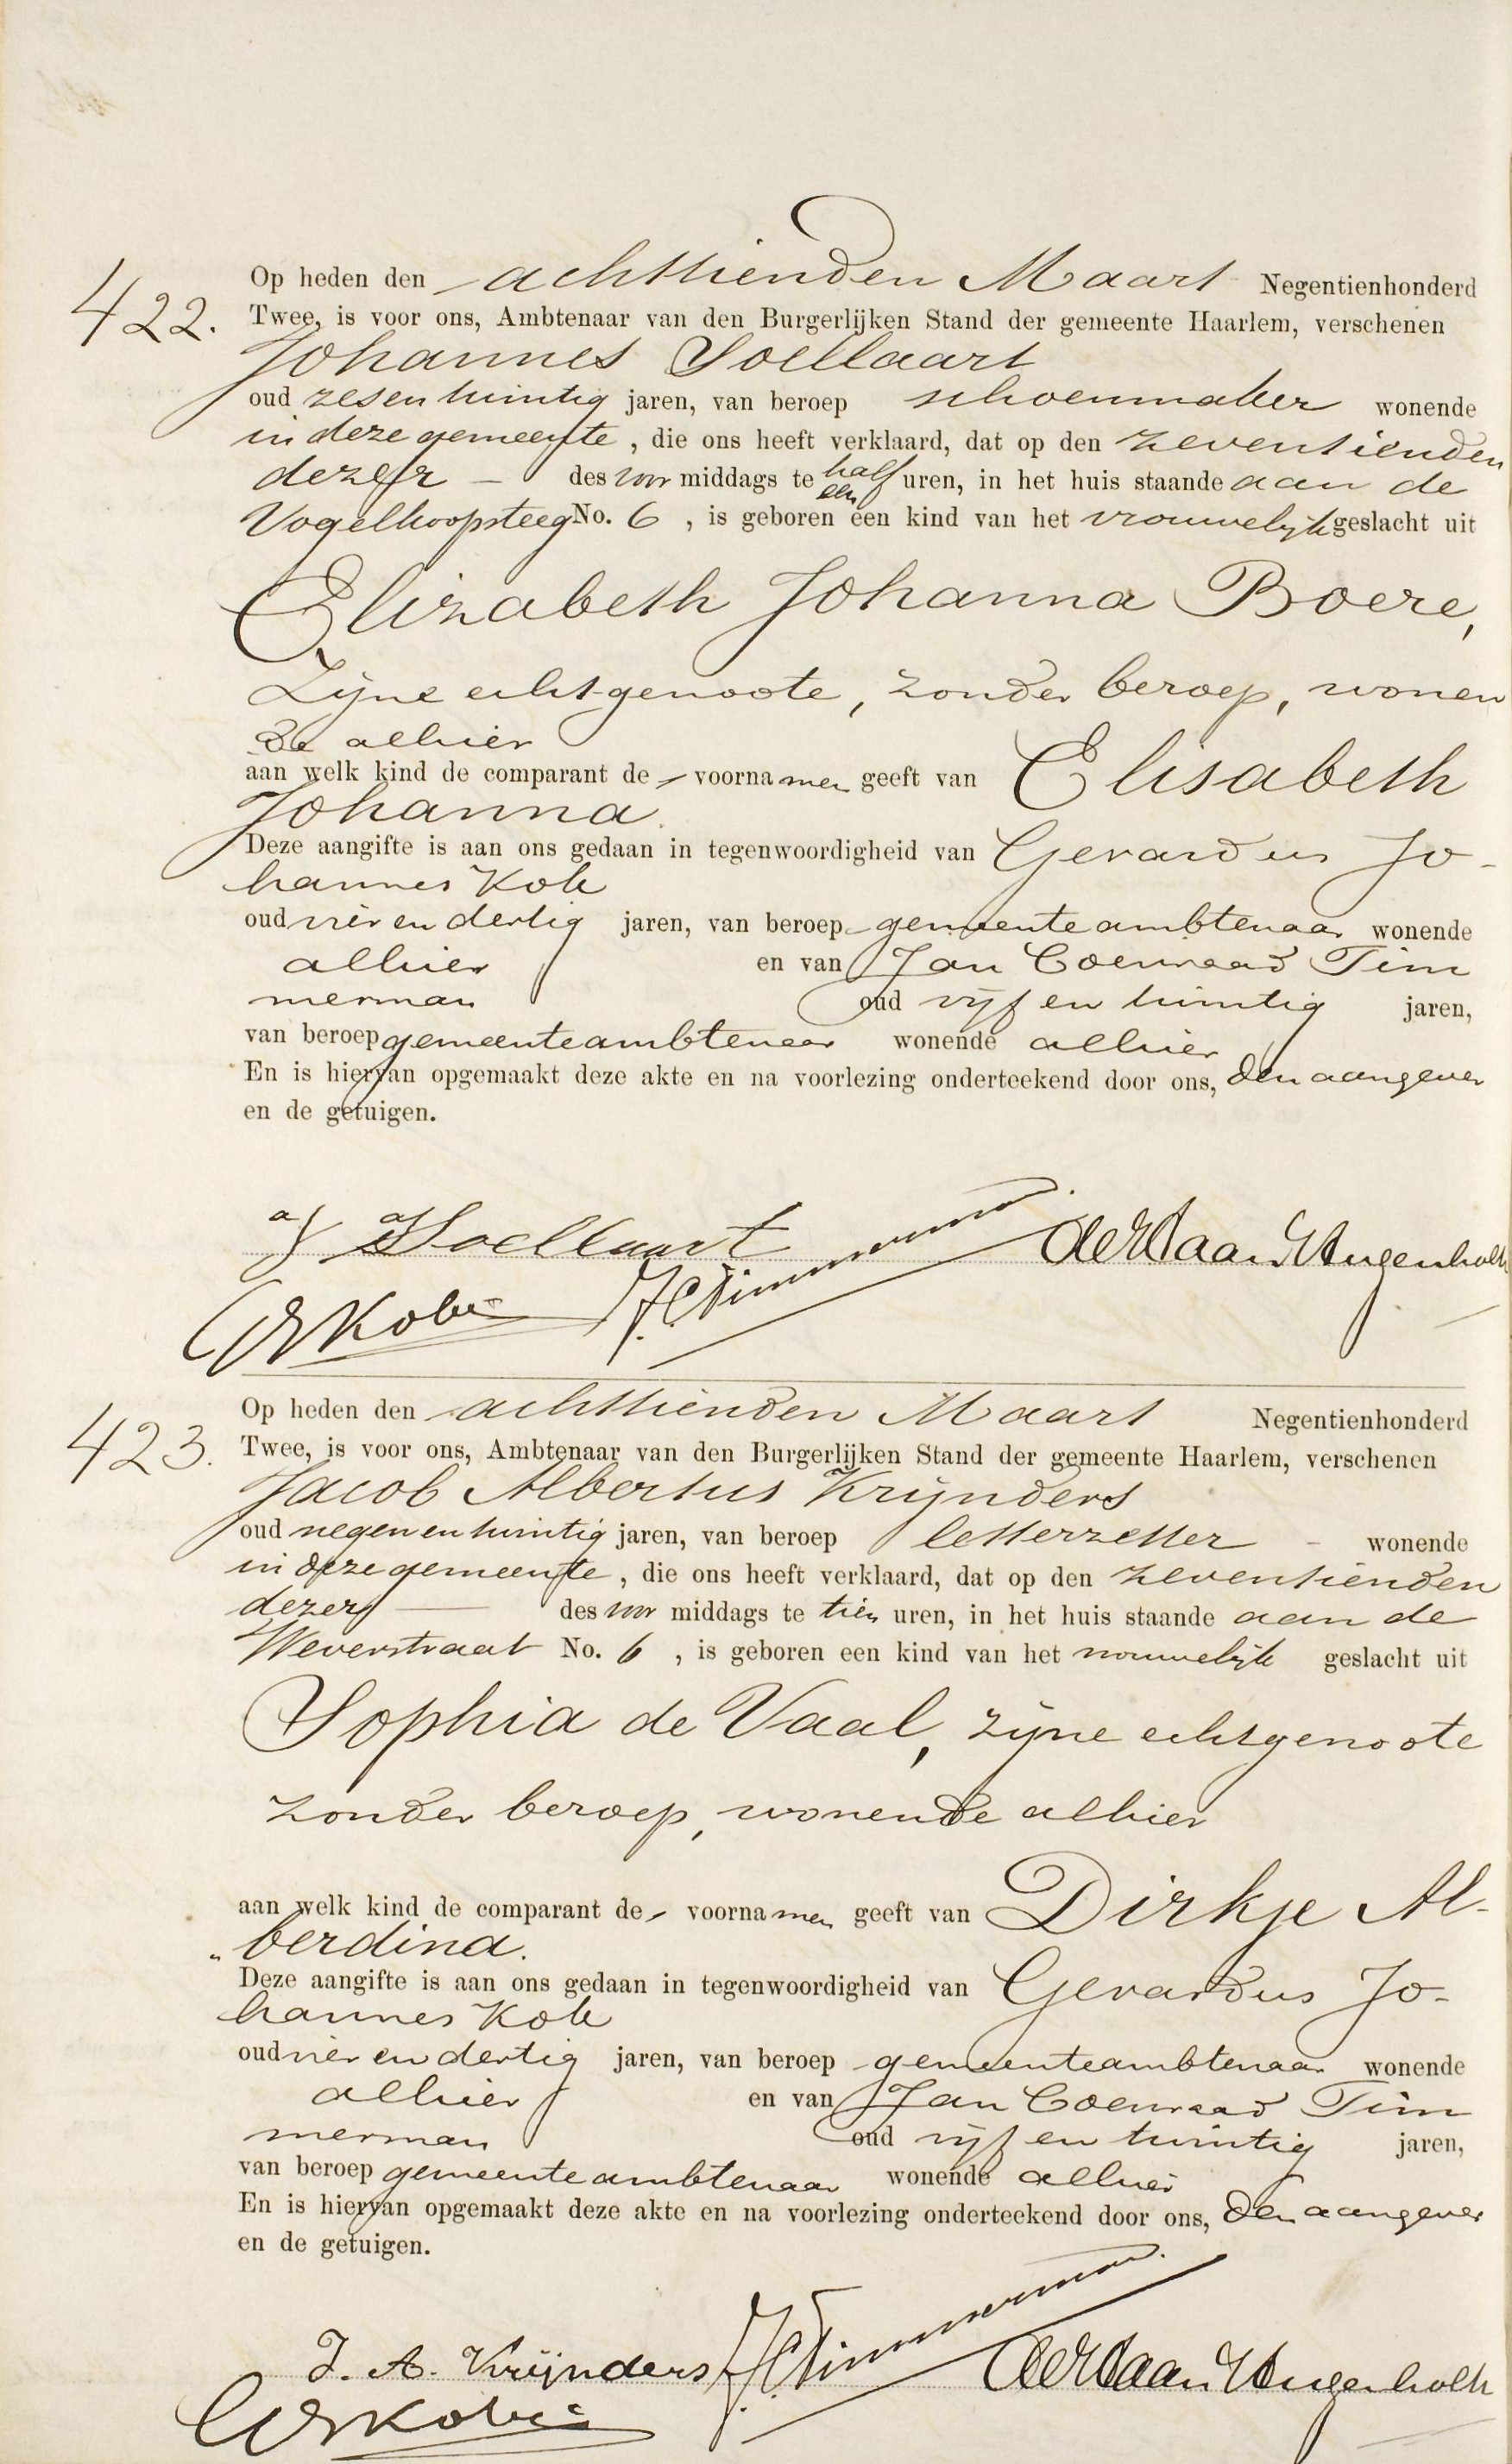 422.
Op heden den achttienden Maart Negentienhonderd
Twee, is voor ons, Ambtenaar van den Burgerlijken Stand der gemeente Haarlem, verschenen
Johannes Soellaart
oud zesentwintig jaren, van beroep schoenmaker wonende
in deze gemeente, die ons heeft verklaard, dat op den zeventienden
dezer – des voor middags te half een uren, in het huis staande aan de
Vogelkoopsteeg No. 6, is geboren een kind van het vrouwelijk geslacht uit
Elizabeth Johanna Boere,
zijne echtgenoote, zonder beroep, wonen
de alhier
aan welk kind de comparant de - voornamen geeft van Elisabeth
Johanna.
Deze aangifte is aan ons gedaan in tegenwoordigheid van Gerardus Jo-
hannes Kok
oud vier en dertig jaren, van beroep gemeenteambtenaar wonende
alhier en van Jan Coenraad Tim
merman oud vijf en twintig jaren,
van beroep gemeenteambtenaar wonende alhier
En is hiervan opgemaakt deze akte en na voorlezing onderteekend door ons, den aangever
en de getuigen.
J Soellaart JCTimmerman
GJKok
423.
Op heden den achttienden Maart Negentienhonderd
Twee, is voor ons, Ambtenaar van den Burgerlijken Stand der gemeente Haarlem, verschenen
Jacob Albertus Krijnders
oud negenentwintig jaren, van beroep letterzetter - wonende
in deze gemeente, die ons heeft verklaard, dat op den zeventienden
dezer — des voor middags te tien uren, in het huis staande aan de
Weverstraat No. 6, is geboren een kind van het vrouwelijk geslacht uit
Sophia de Vaal, zijne echtgenoote
zonder beroep, wonende alhier
aan welk kind de comparant de - voornamen geeft van Dirkje Al-
berdina.
Deze aangifte is aan ons gedaan in tegenwoordigheid van Gerardus Jo-
hannes Kok
oud vier en dertig jaren, van beroep gemeenteambtenaar wonende
alhier en van Jan Coenraad Tim
merman oud vijf en twintig jaren,
van beroep gemeenteambtenaar wonende alhier
En is hiervan opgemaakt deze akte en na voorlezing onderteekend door ons, den aangever
en de getuigen.
J. A. Krijnders JCTimmerman
GJKok